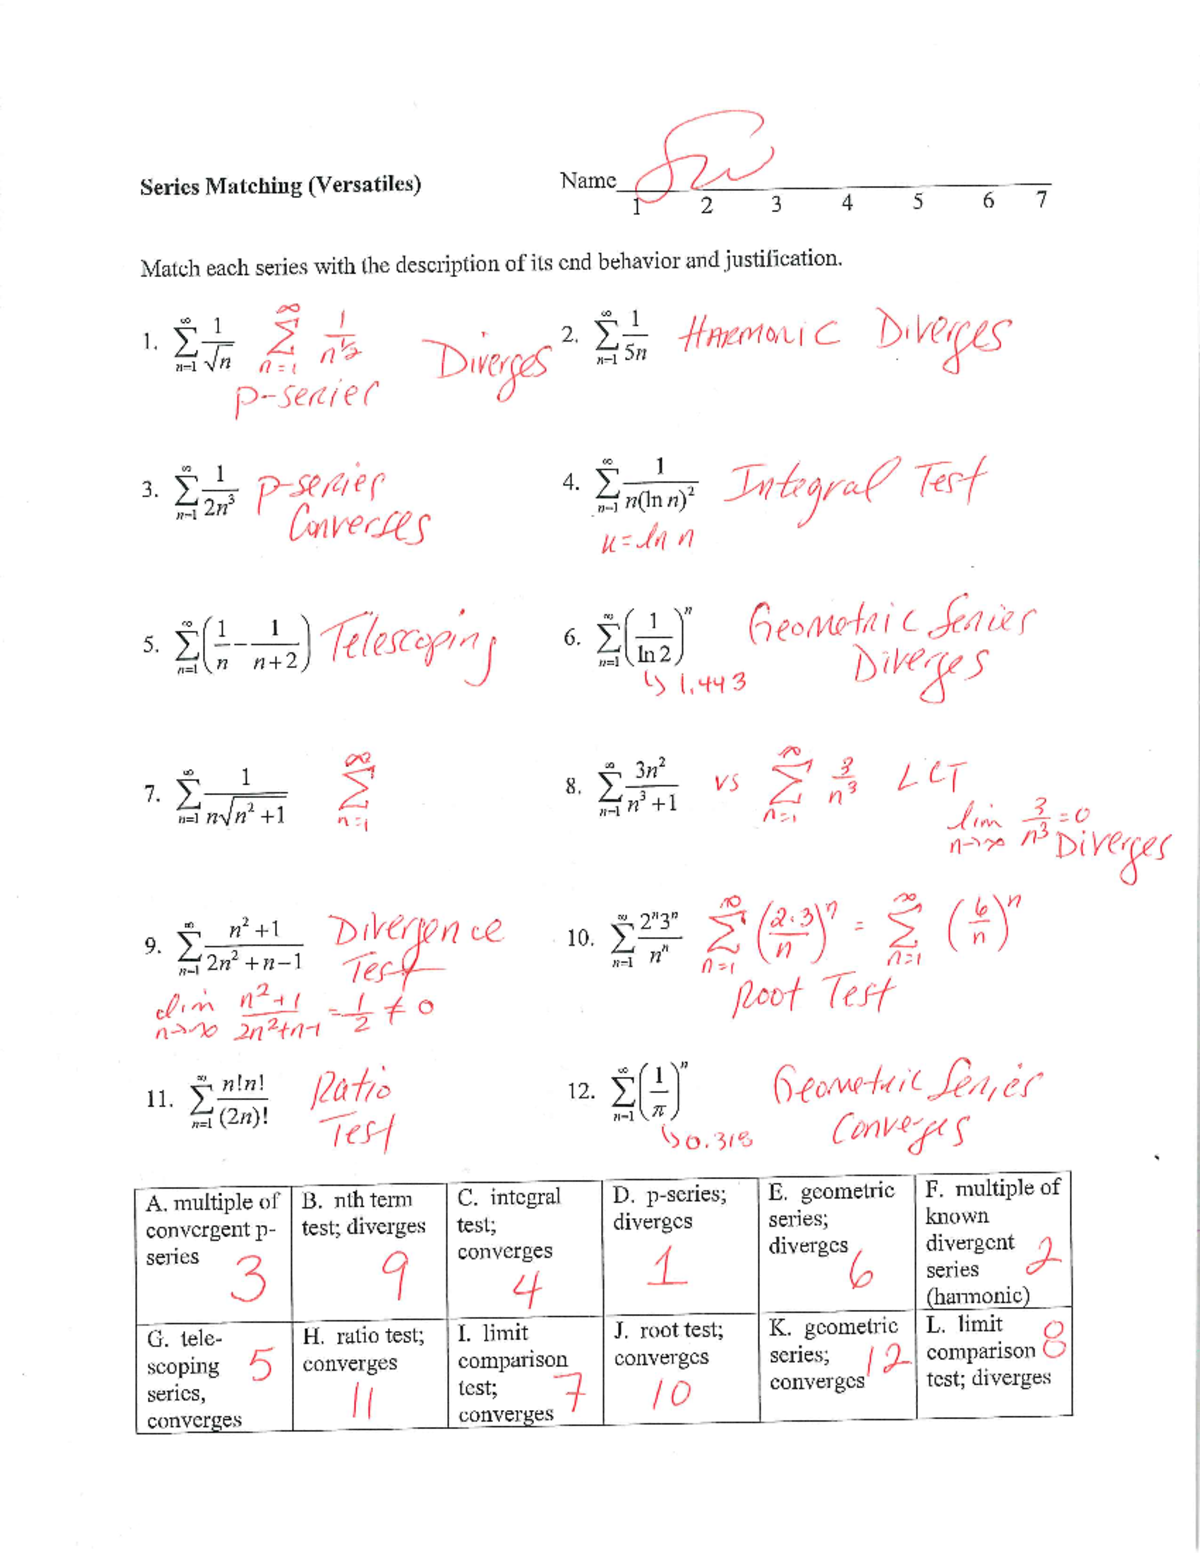 Series Matching (Versatiles) Name
1 2 3 4 5 6 7
Match each series with the description of its end behavior and justification.
1. ∞∑n=1 1/√n ∞∑n=1 1/n^½ Diverges
p-series
2. ∞∑n=1 1/5n HARMONIC Diverges
3. ∞∑n=1 1/2n³ p-series
Converges
4. ∞∑n=1 1/n(ln n)² Integral Test
u = ln n
5. ∞∑n=1 (1/n − 1/n+2) Telescoping
6. ∞∑n=1 (1/ln 2)^n Geometric Series
Diverges
↳ 1.443
7. ∞∑n=1 1/n√n²+1 ∞∑n=1
8. ∞∑n=1 3n²/n³+1 vs ∞∑n=1 3/n³ LCT
lim n→∞ 3/n³ = 0
Diverges
9. ∞∑n=1 n²+1/2n²+n−1 Divergence
Test
lim n→∞ n²+1/2n²+n-1 = 1/2 ≠ 0
10. ∞∑n=1 2^n3^n/n^n ∞∑n=1 (2·3/n)^n = ∞∑n=1 (6/n)^n
Root Test
11. ∞∑n=1 n!n!/(2n)! Ratio
Test
12. ∞∑n=1 (1/π)^n Geometric Series
Converges
↳ 0.318
A. multiple of
convergent p-
series
3
B. nth term
test; diverges
9
C. integral
test;
converges
4
D. p-series;
diverges
1
E. geometric
series;
diverges
6
F. multiple of
known
divergent
series
(harmonic)
2
G. tele-
scoping
series,
converges
5
H. ratio test;
converges
11
I. limit
comparison
test;
converges
7
J. root test;
converges
10
K. geometric
series;
converges
12
L. limit
comparison
test; diverges
8